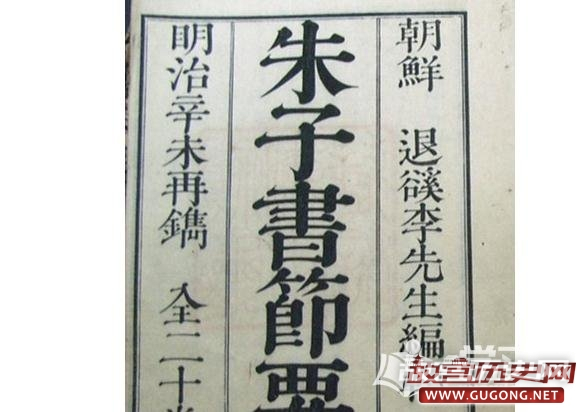 朝鮮 退谿李先生編
朱子書節要
明治辛未再鐫 全二十
故宫历史网
WWW.GUGONG.NET